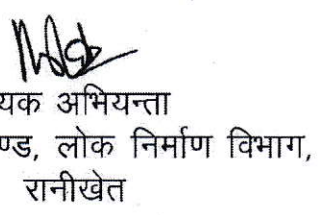 यक अभियन्ता
ण्ड, लोक निर्माण विभाग,
रानीखेत